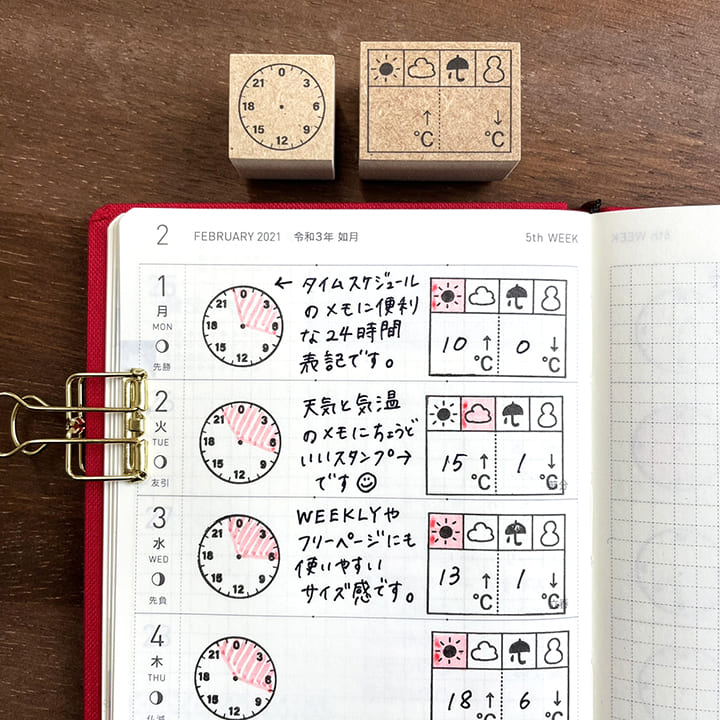 21 0 3
18 6
15 12 9
↑ ↓
℃ ℃
2 FEBRUARY 2021 令和3年 如月 5th WEEK
1
月
MON
先勝
21 0 3
18 6
15 12 9
← タイムスケジュール
のメモに便利
な24時間
表記です。
10 ↑ 0 ↓
℃ ℃
2
火
TUE
友引
21 0 3
18 6
15 12 9
天気と気温
のメモにちょうど
いいスタンプ→
です
15 ↑ 1 ↓
℃ ℃
3
水
WED
先負
21 0 3
18 6
15 12 9
WEEKLYや
フリーページにも
使いやすい
サイズ感です。
13 ↑ 1 ↓
℃ ℃
4
木
THU
仏滅
21 0 3
18 6
15 12 9
18 ↑ 6 ↓
℃ ℃